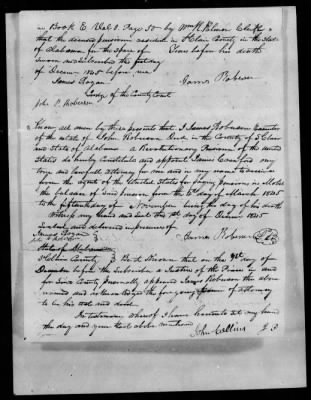 in Book E Vol 8. Page 50 - by Wm K. Palmer Clerk &
that the deceased pensioner resided in St Clair County in the State
of Alabama for the space of years before his death
Sworn and Subscribed the first day
of Decem 1845 before me
James Rogan James Roberson
Judge of the County Court
John P. Roberson
Know all men by these presents that I James Robinson Executor
of the estate of John Robinson Decd. in the County of St Clair
and State of Alabama a Revolutionary Pensioner of the United
States do hereby Constitute and appoint James Crawford my
true and lawful attorney for me and in my name to receive
from the agent of the United States for paying pensions in Mobile
the balance of said pension from the 4th day of March 1845
to the fifteenth day of November being the day of his death
Witness my hand and seal this 1st day of Decem 1845
Sealed and delivered in presence of
James Rogan James Roberson
State of Alabama
St Clair County Be it Known that on the day of
December before the Subscriber a Justice of the Peace in and
for said County Personally appeared James Robinson the above
named and acknowledged the foregoing power of attorney
to be his act and deed.
In testimony whereof I have hereunto set my hand
the day and year last above mentioned
John Collins J P